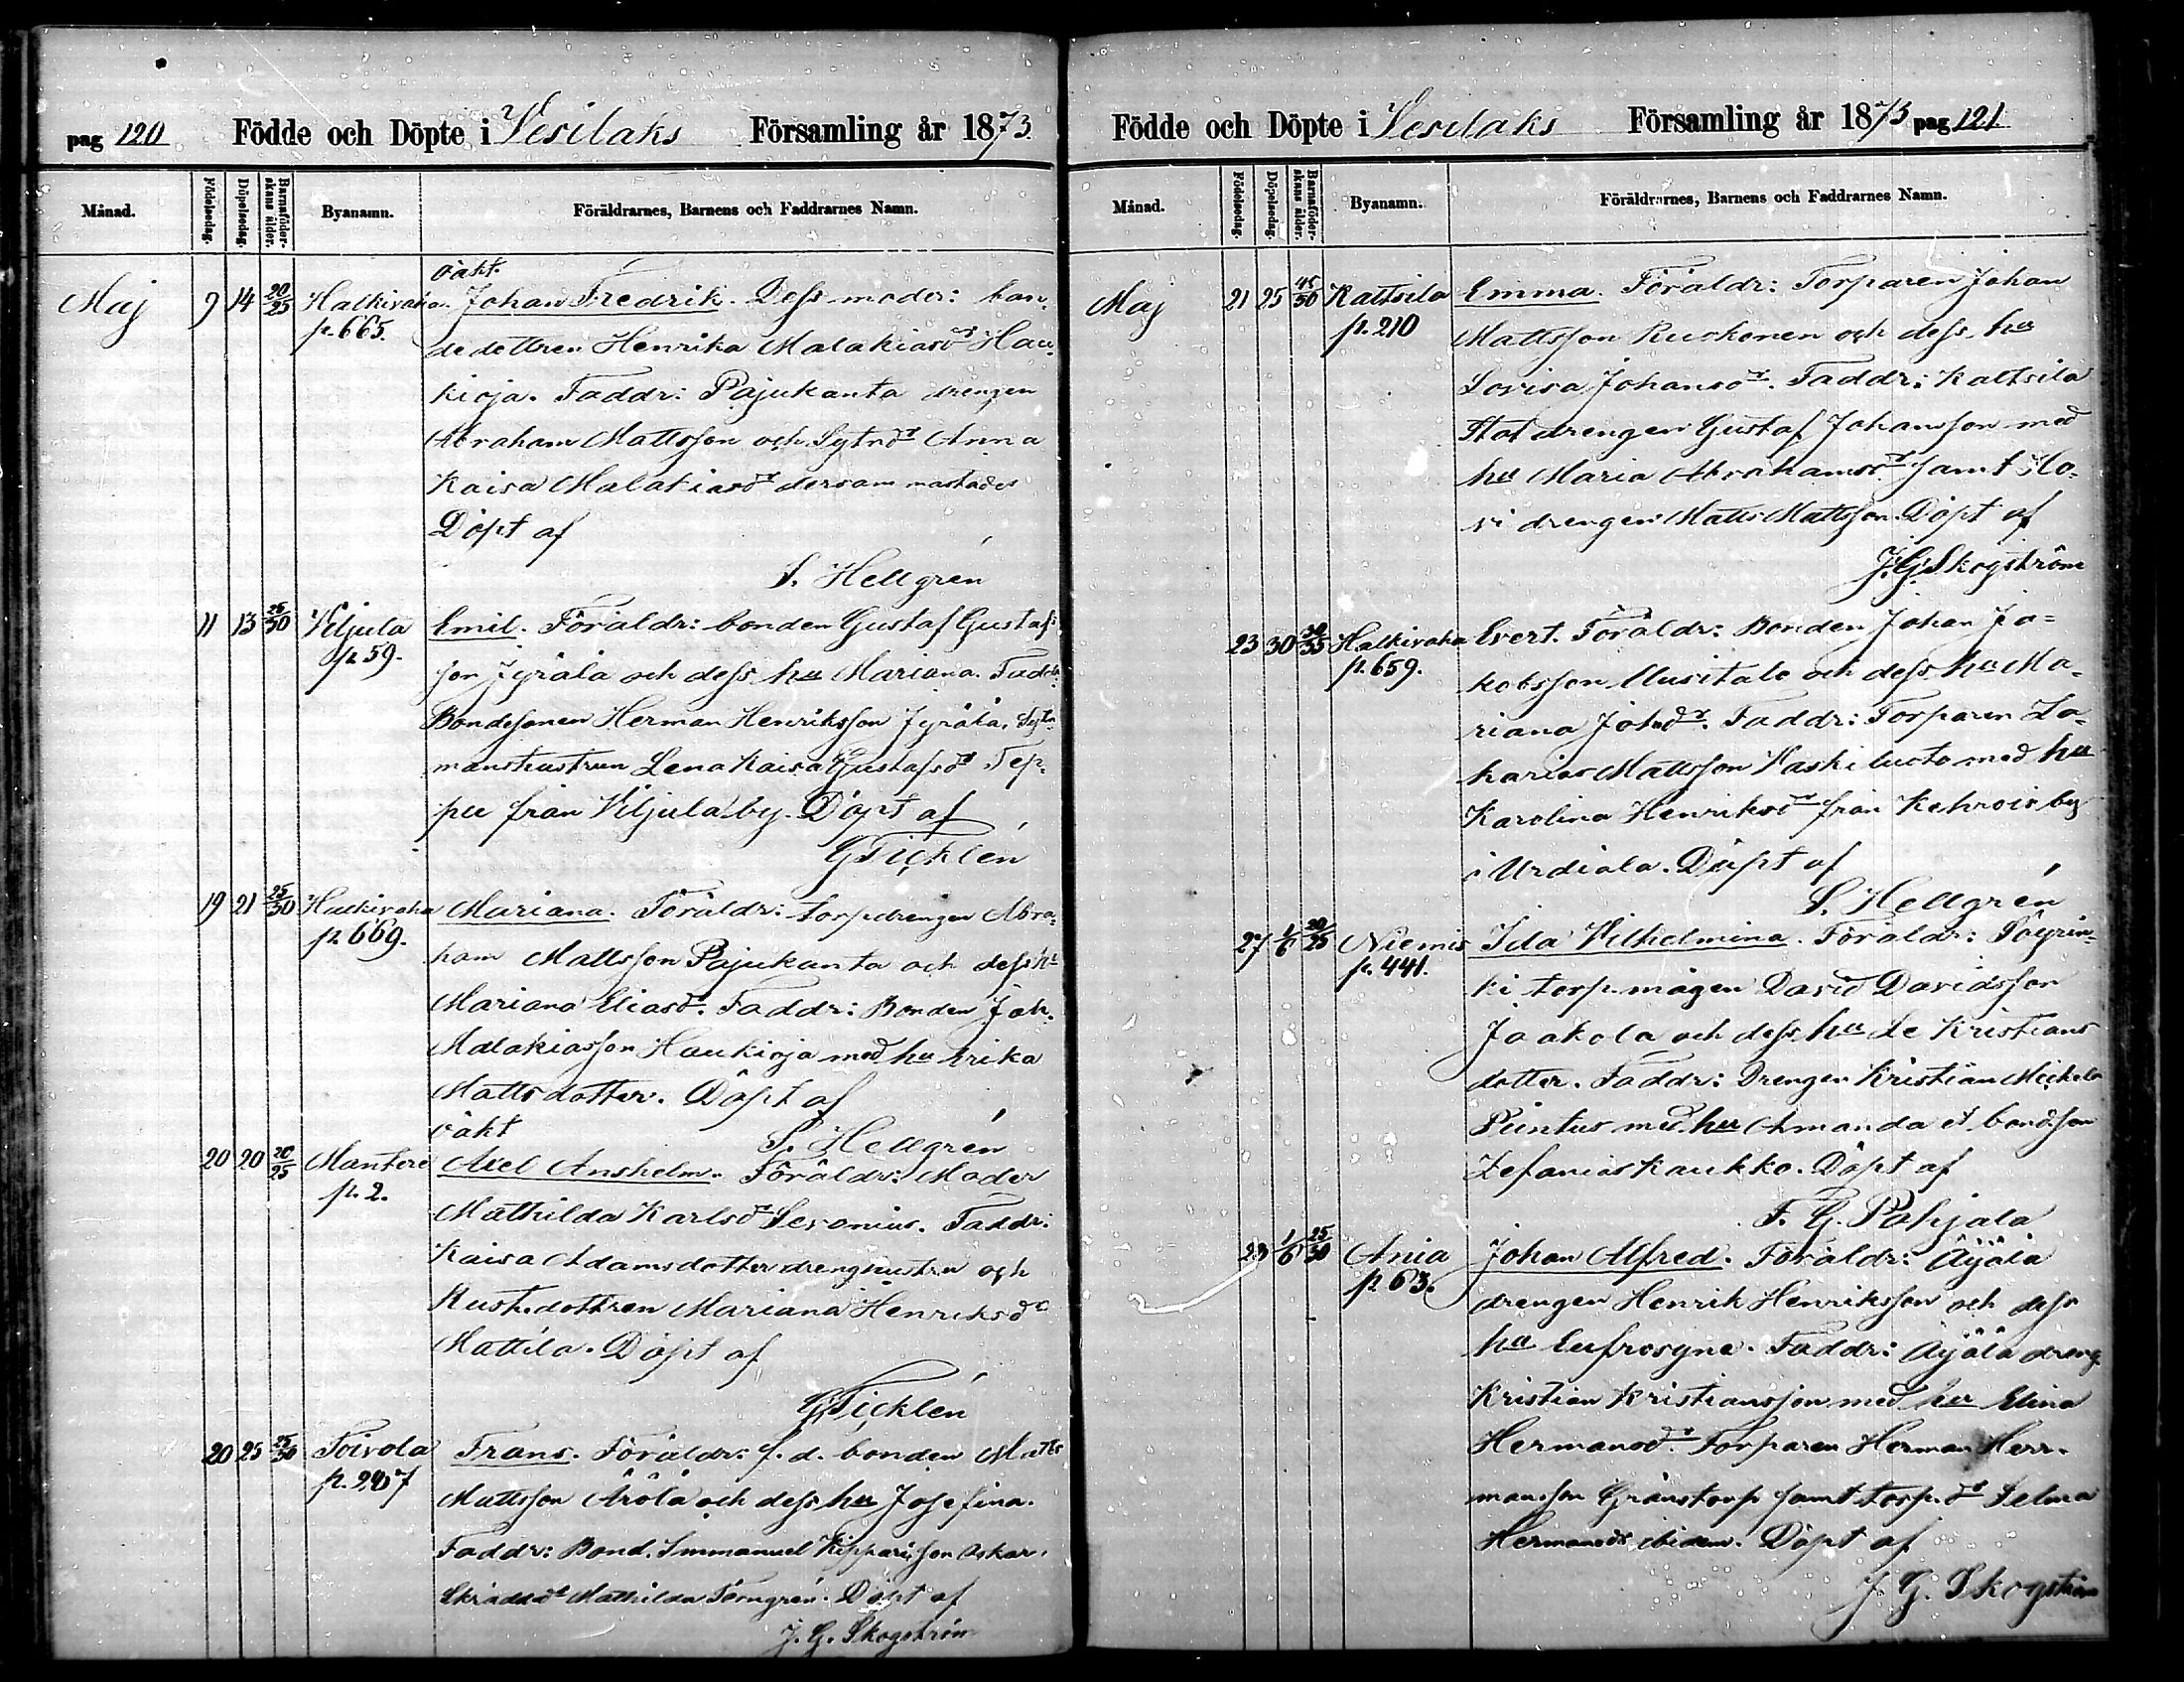 pag 120 Födde och Döpte i Vesilaks Församling år 1873.
Månad. Födelsedag. Döpelsedag. Barnaföderskans ålder. Byanamn. Föräldrarnes, Barnens och Faddrarnes Namn.
oäkt.
Maj 9 14 20/25 Halkivaha Johan Fredrik. Dess moder: bon-
p. 665. dedottren Henrika Malakiasdr Hau-
kioja. Faddr: Pajukanta drengen
Abraham Mattsson och Sytndr Anna
Kaisa Malakiasdr dersammastädes
Döpt af
S. Hellgrén
11 13 25/30 Viljula Emil. Föräldr: bonden Gustaf Gustafs-
p. 59. son Jyrälä och dess hu Mariana. Faddr:
Bondesonen Herman Henriksson Jyrälä, Sytn-
manshustrun Lena Kaisa Gustafsdr Sep-
pu från Viljula by. Döpt af
G Ticklén
19 21 25/30 Halkivaha Mariana. Föräldr: torpdrengen Abra-
p. 669. ham Mattsson Pajukanta och dess hu
Mariana Eliasdr. Faddr: Bonden Joh.
Malakiasson Haukioja med hu Erika
Mattsdotter. Döpt af
S. Hellgrén
oäkt
20 20 20/25 Mantere Axel Anshelm. Föräldr: Moder
p. 2. Mathilda Karlsdr Leronius. Faddr:
Kaisa Adamsdotter drenghustru och
Rusth.dottren Mariana Henriksdr
Mattila. Döpt af
G Ticklén
20 25 25/30 Toivola Frans. Föräldr: f.d. bonden Matts
p. 247 Mattsson Ärölä och dess hu Josefina.
Faddr: Bond. Immanuel Kippariisson Oskar,
Skräddr Mathilda Törngrén. Döpt af
J. G. Skogström
Födde och Döpte i Vesilaks Församling år 1873 pag 121
Månad. Födelsedag. Döpelsedag. Barnaföderskans ålder. Byanamn. Föräldrarnes, Barnens och Faddrarnes Namn.
Maj 21 25 45/50 Kaltsila Emma. Föräldr: Torparen Johan
p. 210 Mattsson Ruskonen och dess hu
Lovisa Johansdr. Faddr: Kaltsila
Statdrengen Gustaf Johansson med
hu Maria Abrahamsdr samt Ilo-
vi drengen Matts Mattsson. Döpt af
J. G. Skogström
23 30 30/35 Halkivaha Evert. Föräldr: Bonden Johan Ja-
p. 659. kobsson Uusitalo och dess hu Ma-
riana Johsdr. Faddr: Torparen Za-
karias Mattsson Vaskiluoto med hu
Karolina Henriksdr från Kehrois by
i Urdiala. Döpt af
S. Hellgrén
27 1/6 20/25 Niemis Ida Vilhelmina. Föräldr: Päyrin-
p. 441. ki torp.mågen David Davidsson
Jaakola och dess hu Le Kristians
dotter. Faddr: Drengen Kristian Mickels
Puntus med hu Amanda et bondson
Zefanias Kaukko. Döpt af
F. G. Pohjala
29 1/6 25/30 Ania Johan Alfred. Föräldr: Äijälä
p. 63. drengen Henrik Henriksson och dess
hu Eufrosyne. Faddr: Äijälä dreng
Kristian Kristiansson med hu Elina
Hermansdr Torparen Herman Her-
mansson Gränstorp samt torp.dr Selma
Hermansdr ibidem. Döpt af
J. G. Skogström